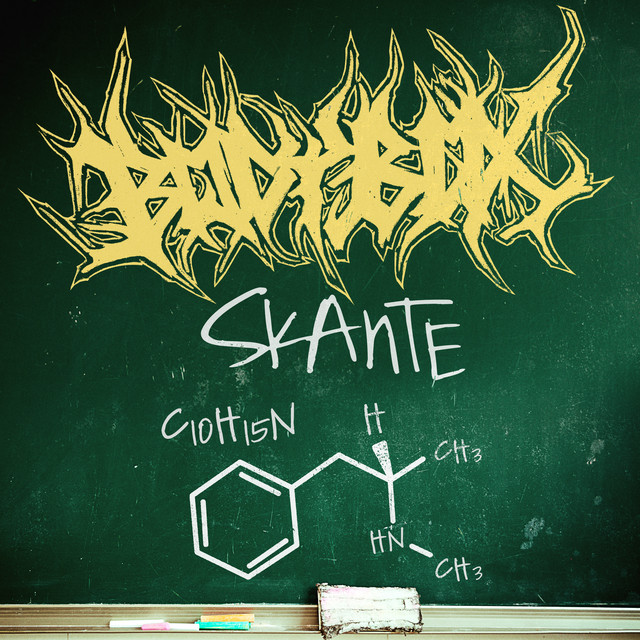 BODYBOX
SKANTE
C10H15N
H
CH3
HN
CH3